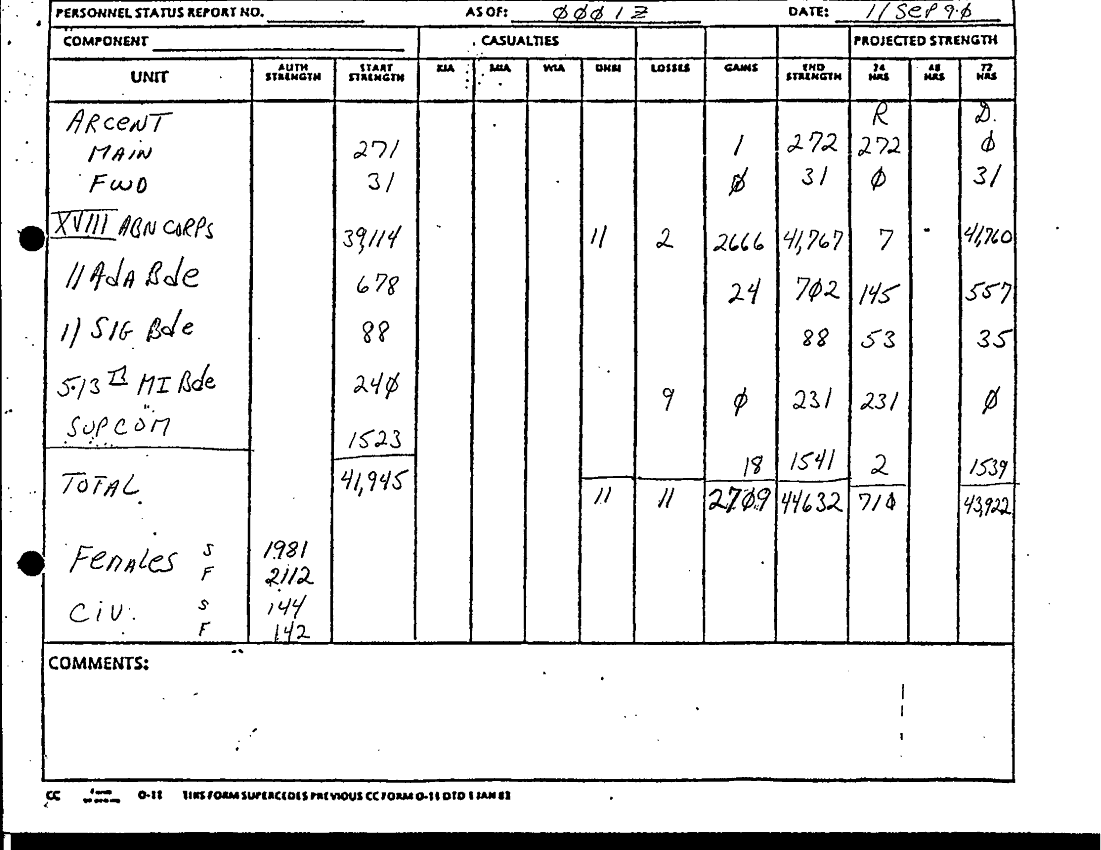 PERSONNEL STATUS REPORT NO. AS OF: ØØØ1Z DATE: 11 SEP 9Ø
COMPONENT CASUALTIES PROJECTED STRENGTH
UNIT AUTH STRENGTH START STRENGTH KIA MIA WIA DNBI LOSSES GAINS END STRENGTH 24 HRS 48 HRS 72 HRS
ARCENT R D.
MAIN 271 1 272 272 Ø
FWD 31 Ø 31 Ø 31
XVIII ABN CORPS 39,114 11 2 2666 41,767 7 41,760
11 AdA Bde 678 24 7Ø2 145 557
11 SIG Bde 88 88 53 35
513 MI Bde 24Ø 9 Ø 231 231 Ø
SUPCOM 1523 18 1541 2 1539
TOTAL 41,945 11 11 27Ø9 44632 71Ø 43,922
Females S 1981
F 2112
CIV. S 144
F 142
COMMENTS:
CC O-11 THIS FORM SUPERCEDES PREVIOUS CC FORM O-11 DTD 1 JAN 82